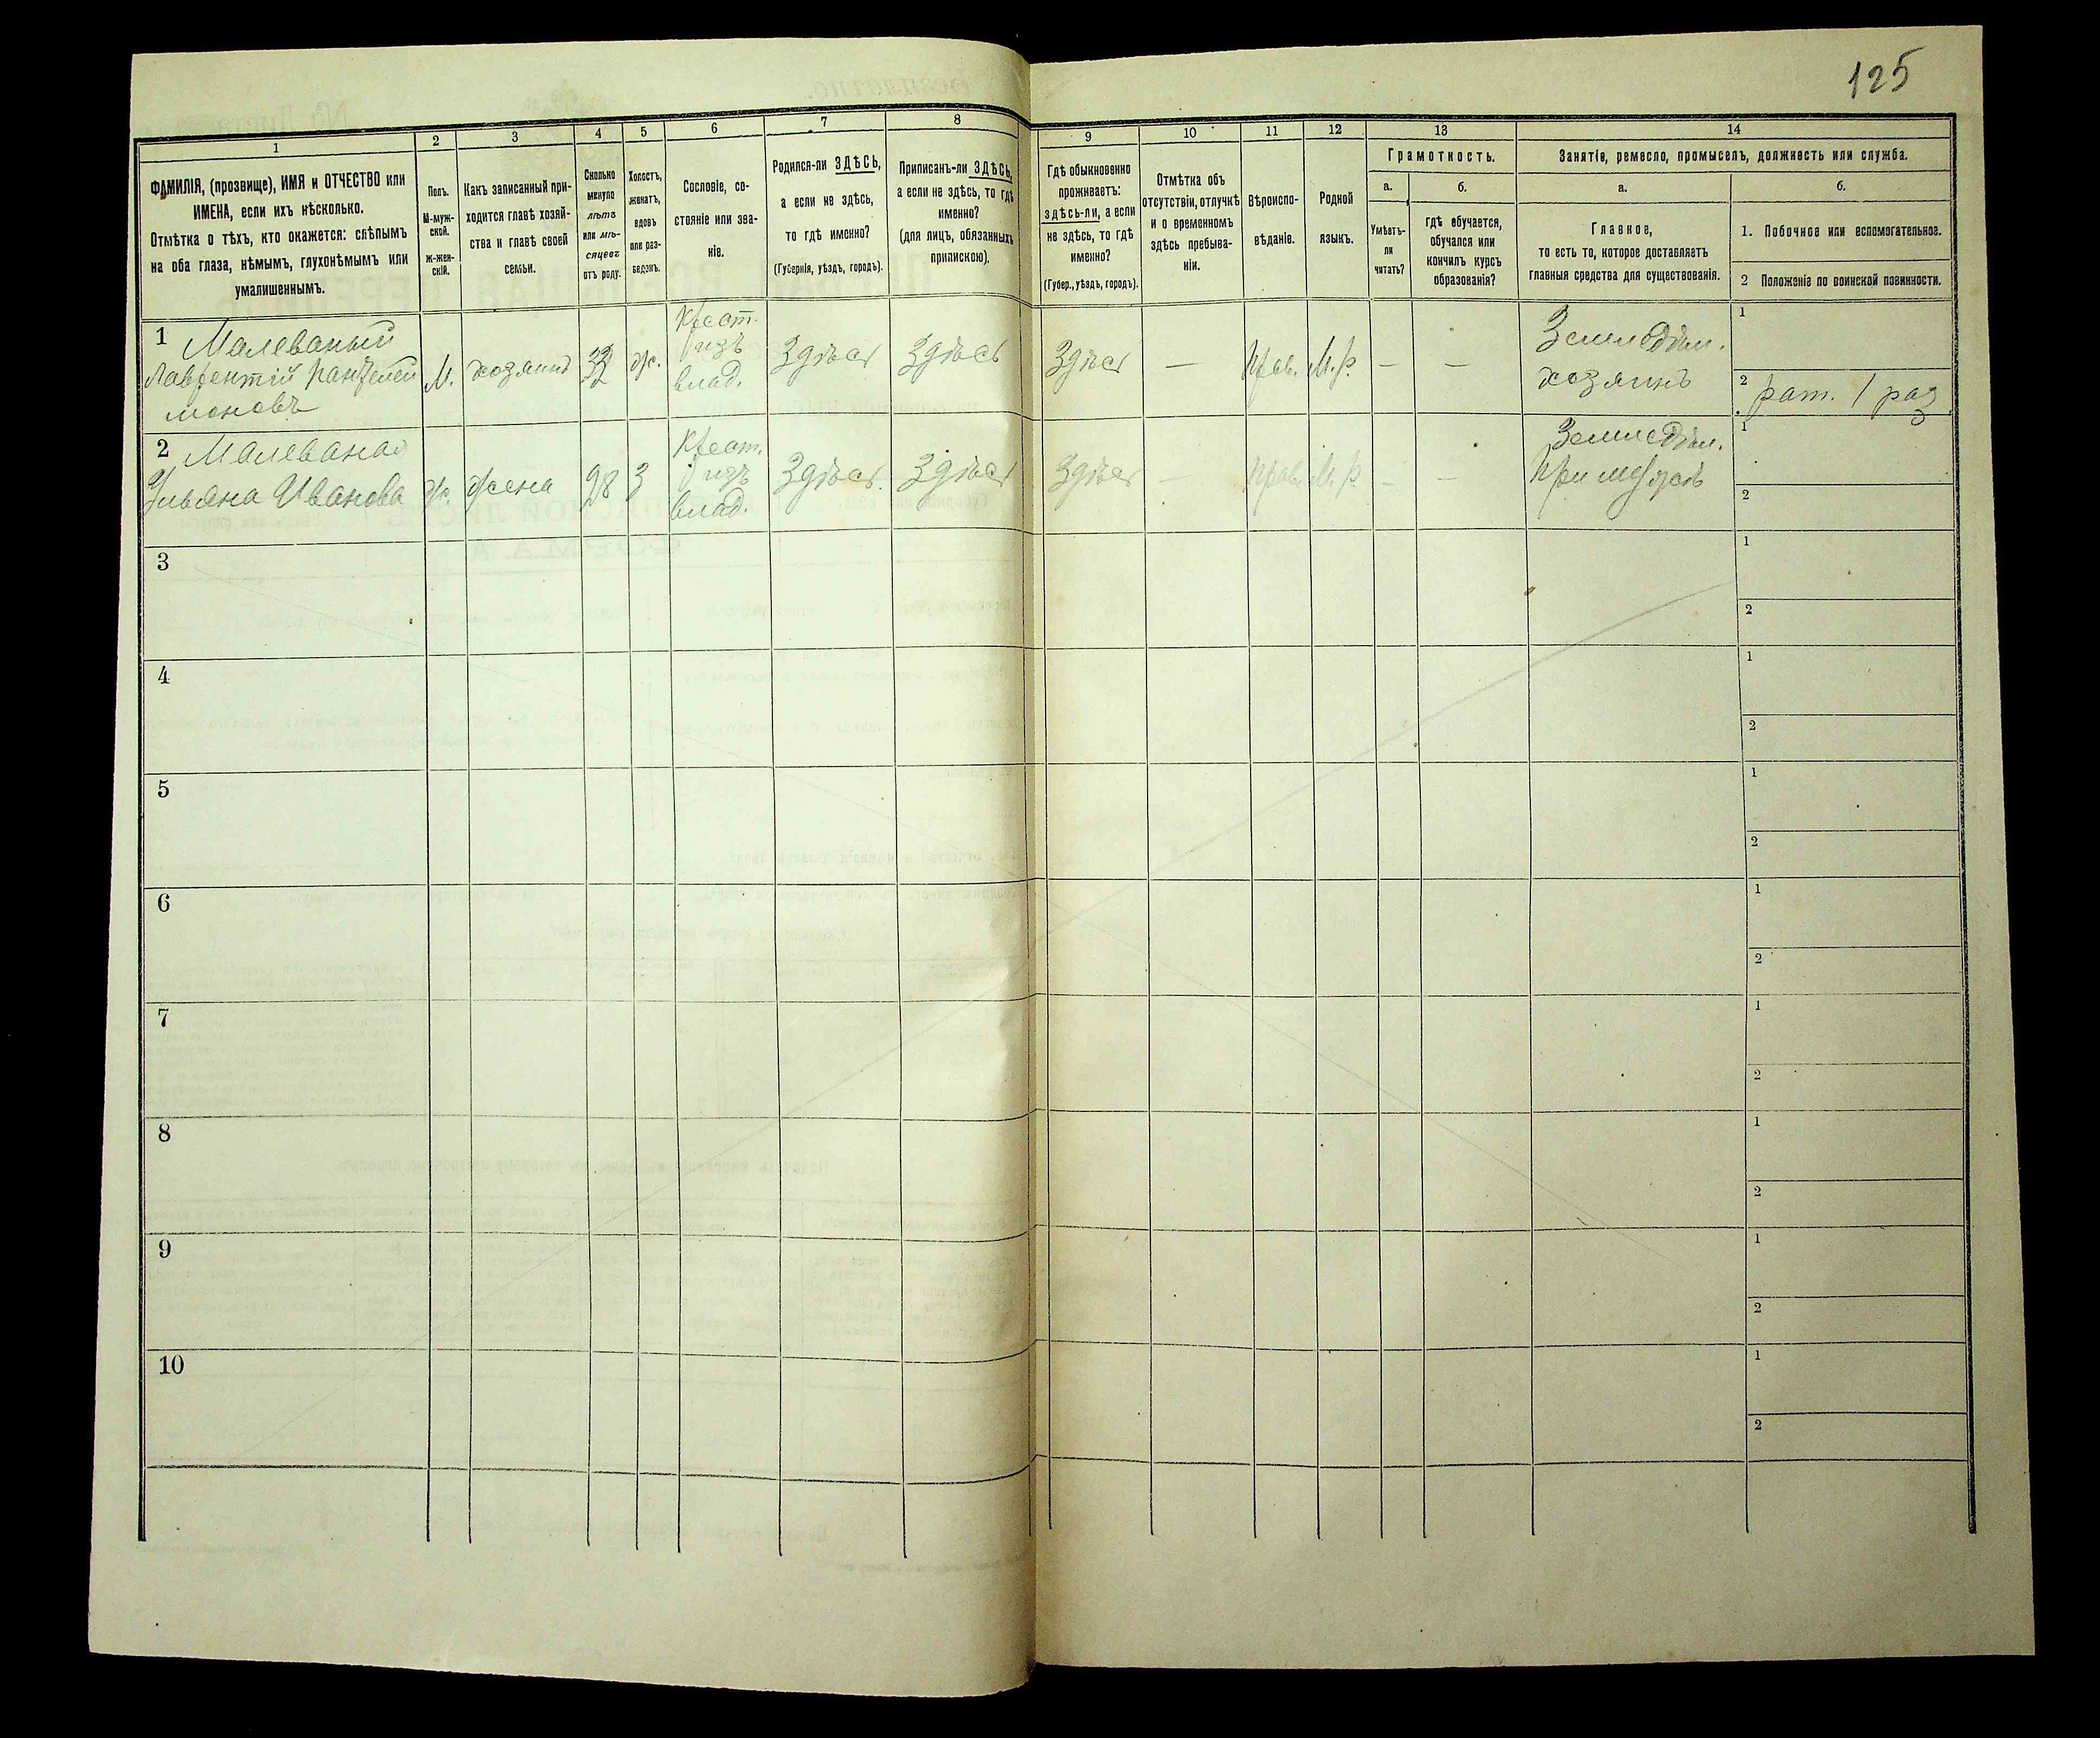 125
1
2
3
4
5
6
7
8
9
10
11
12
13
14
ФАМИЛІЯ, (прозвище), ИМЯ и ОТЧЕСТВО или
ИМЕНА, если ихъ нѣсколько.
Отмѣтка о тѣхъ, кто окажется: слѣпымъ
на оба глаза, нѣмымъ, глухонѣмымъ или
умалишеннымъ.
Полъ.
М-муж-
ской.
ж-жен-
скій.
Какъ записанный при-
ходится главѣ хозяй-
ства и главѣ своей
семьи.
Сколько
минуло
лѣтъ
или мѣ-
сяцевъ
отъ роду.
Холостъ,
женатъ,
вдовъ
или раз-
веденъ.
Сословіе, со-
стояніе или зва-
ніе.
Родился-ли ЗДѢСЬ,
а если не здѣсь,
то гдѣ именно?
(Губернія, уѣздъ, городъ).
Приписанъ-ли ЗДѢСЬ,
а если не здѣсь, то гдѣ
именно?
(для лицъ, обязанныхъ
припискою).
Гдѣ обыкновенно
проживаетъ:
здѣсь-ли, а если
не здѣсь, то гдѣ
именно?
(Губер., уѣздъ, городъ).
Отмѣтка объ
отсутствіи, отлучкѣ
и о временномъ
здѣсь пребыва-
ніи.
Вѣроиспо-
вѣданіе.
Родной
языкъ.
Грамотность.
а.
б.
Умѣетъ-
ли
читать?
гдѣ обучается,
обучался или
кончилъ курсъ
образованія?
Занятіе, ремесло, промыселъ, должность или служба.
а.
б.
Главное,
то есть то, которое доставляетъ
главныя средства для существованія.
1. Побочное или вспомогательное.
2 Положеніе по воинской повинности.
1 Малеваный
Лаврентій Пантелей
моновъ
М.
хозяинъ
32
ж.
Крест.
изъ
влад.
Здѣсь
Здѣсь
Здѣсь
—
Прав.
М.р.
—
—
Земледѣл.
хозяинъ
1
2 рат. 1 раз
2 Малеваная
Ульяна Иванова
Ж.
Жена
28
З
Крест.
изъ
влад.
Здѣсь
Здѣсь
Здѣсь
—
Прав.
М.р.
—
—
Земледѣл.
При мужѣ
1
2
3
1
2
4
1
2
5
1
2
6
1
2
7
1
2
8
1
2
9
1
2
10
1
2